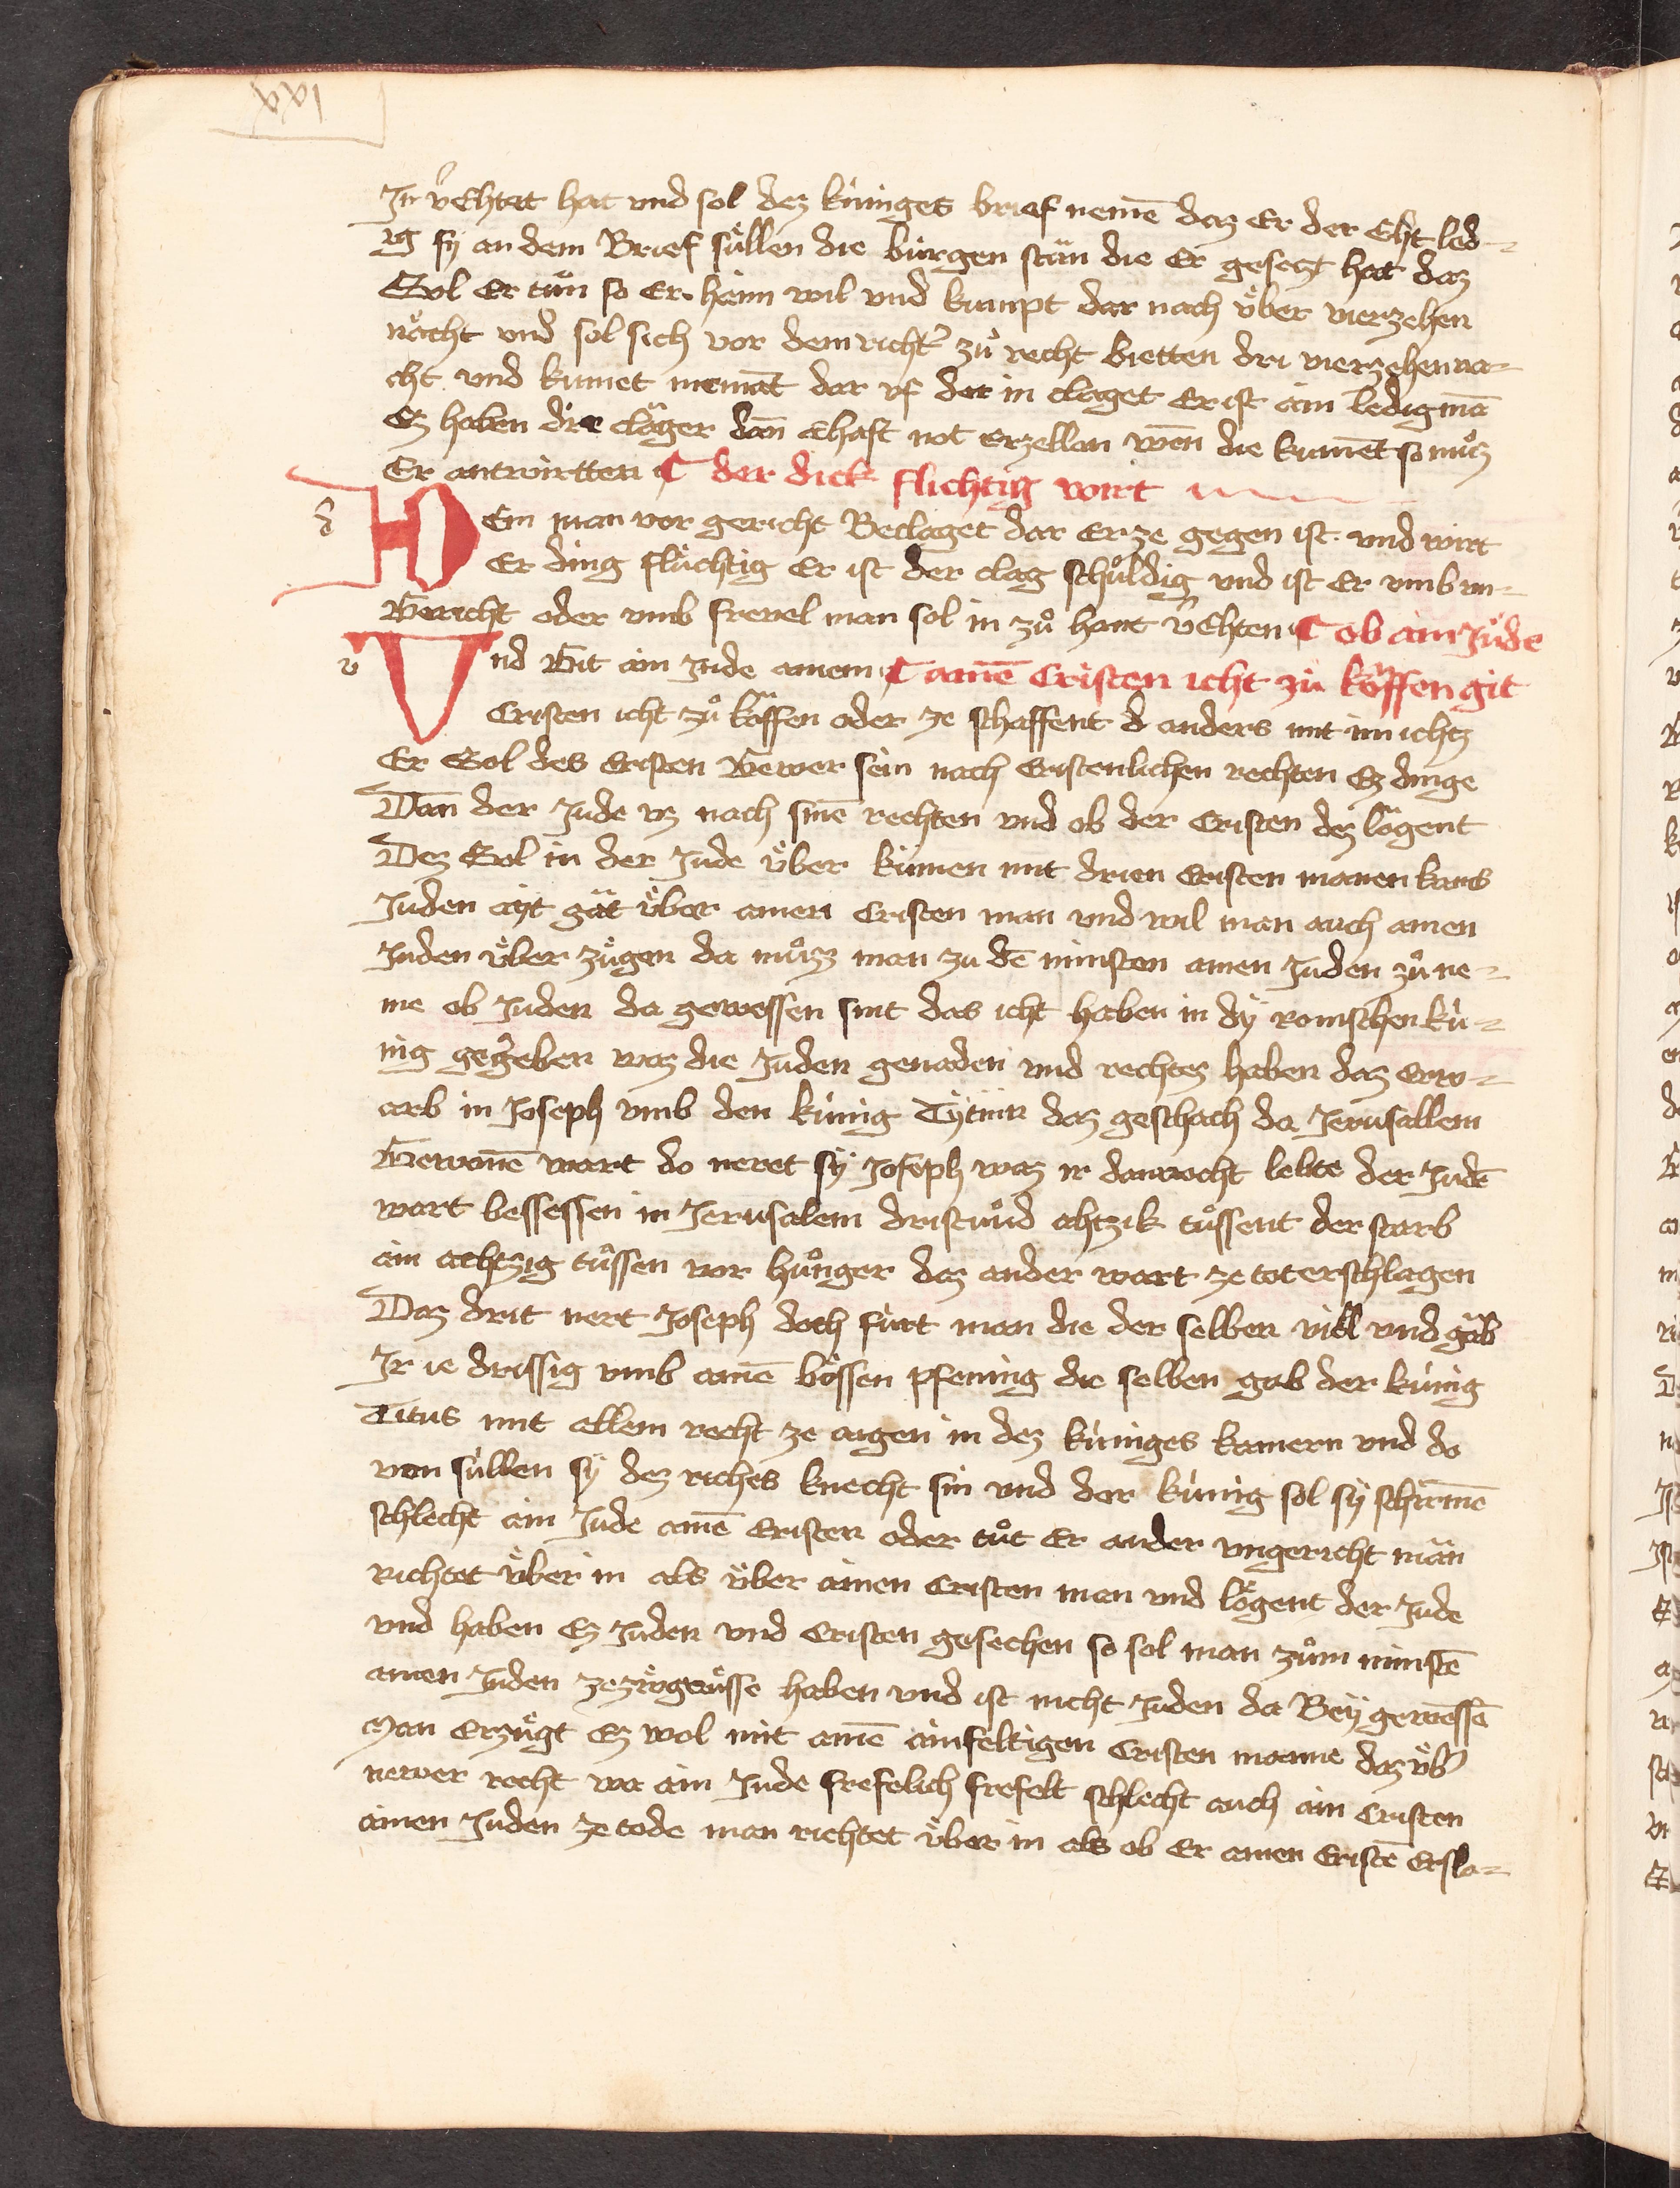 Ir v̓Echtet hat vnd sol dez kúniges brief nemē daz Er der Echt led-
ig sy an dem Brief sùllen die búrgen stän die Er gesetzt hat daz
Sol Er tůn so Er haim wil vnd kumpt dar nach v̈ber vierzehen
nächt vnd sol sich vor dem richt̓ zů recht bietten dri vierzehenna-
cht vnd kumet niemāt dar vf der in claget Er ist ain ledig mā
Ez haben die clăger dañ Ehaft not Erzellen wen die kumēt so můz
Er antwirtten ¶ der dick flichtig wirt
d̓ Em man vor gericht Beclaget dar Er ze gegen ist vnd wirt
Er ding flúchtig Er ist der clag schůldig vnd ist Er vmb vn-
Gericht oder vmb frevel man sol in zů hant v̓Echten ¶ ob ain Jude
v nd Git ain Jude ainem ¶ ainē Cristen icht zů köffen git
Cristen icht zů köffen oder ze schaffent d anders mit im ichtz
Er Sol des Cristen Gewer sein nach Cristenlichen rechten Ez dinge
Dan der Jude vz nach sinē rechten vnd ob der Cristen dez lögent
Dez Sol in der Jude v̈ber kúmen mit drien Cristen manen kains
Juden ayt gät v̈ber ainen Cristen man vnd wil man auch ainen
Juden v̈ber zúgen da můz man zu dē minsten ainen Juden zů ne-
me ob Juden da gewessen sint das icht haben in dÿ romschen kú-
nig gegeben waz die Juden genaden vnd rechtez haben daz erw-
arb in Joseph vmb den kúnig Tÿtum daz geschach da Jerusallem
Gewonē wart do neret sÿ Joseph waz ir dannocht lebte der Judē
wart bessessen in Jerusalem dristund achtzik tůssent der starb
ain achtzig tůssen vor hůnger daz ander wart ze tot erschlagen
Daz drit nert Joseph doch fùrt man die der selben vil vnd gäb
Ir ie drissig vmb ainē bössen pfening die selben gab der kúnig
Titus mit allem recht ze aigen in dez kúniges kamern vnd do
von súllen sÿ dez riches knecht sin vnd der kúnig sol sÿ schirmē
schlecht ain Jude ainē Cristen oder tůt Er ander vngericht män
richtet v̈ber in als v̈ber ainen Cristen man vnd lögent der Jude
vnd haben Ez Juden vnd Cristen gesechen so sol man zům minstē
ainen Juden ze haben vnd ist nicht Juden da Beÿ gewessē
Man Erzúgt Ez wol mit ainē ainfeltigen Cristen manne daz v̈b̓
newer recht wa ain Jude frefelich frefelt schlecht auch ain Cristen
ainen Juden ze tode man richtet v̈ber in als ob Er ainen Cristē Ersla-